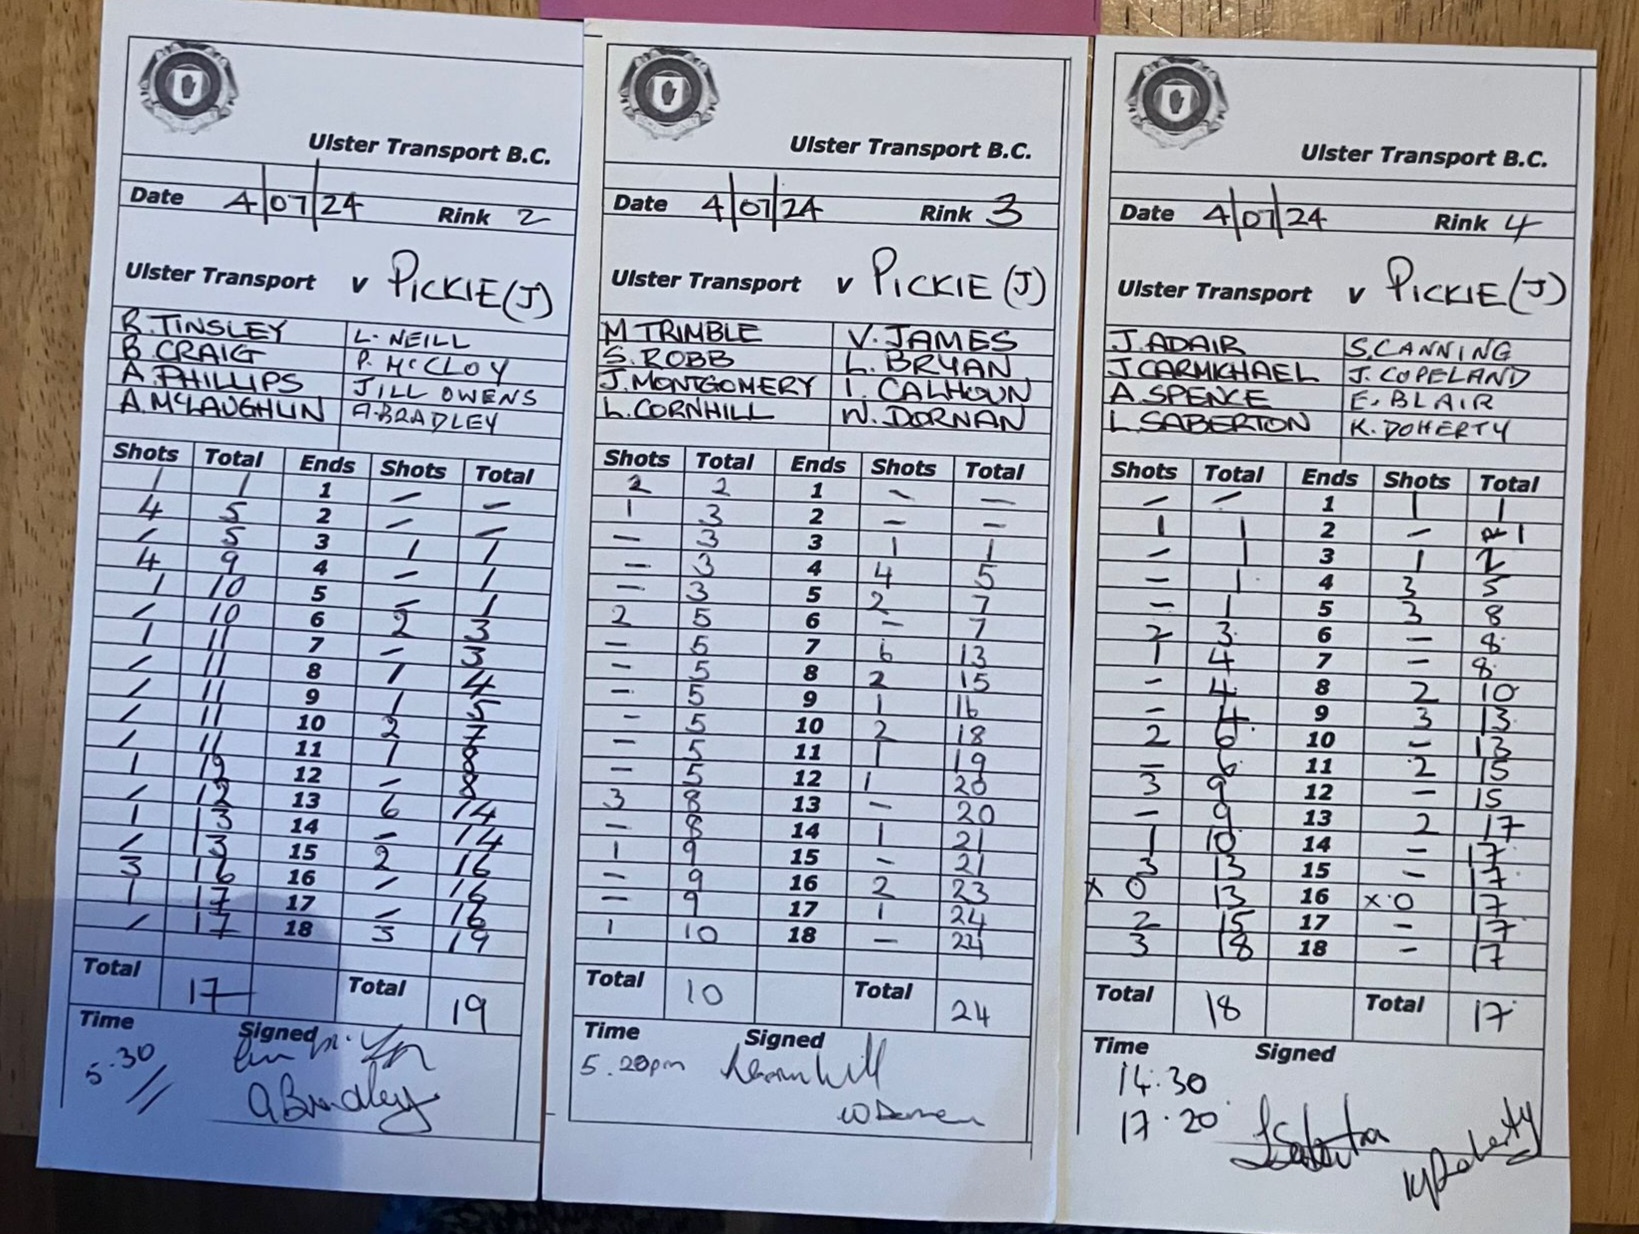 Ulster Transport B.C.
Date 4/07/24 Rink 2
Ulster Transport v PICKIE (J)
R. TINSLEY L. NEILL
B. CRAIG P. McCLOY
A. PHILLIPS JILL OWENS
A. McLAUGHLIN A. BRADLEY
Shots Total Ends Shots Total
1 1 1 – –
4 5 2 – –
– 5 3 1 1
4 9 4 – 1
1 10 5 – 1
– 10 6 2 3
1 11 7 – 3
– 11 8 1 4
– 11 9 1 5
– 11 10 2 7
– 11 11 1 8
1 12 12 – 8
– 12 13 6 14
1 13 14 – 14
– 13 15 2 16
3 16 16 – 16
1 17 17 – 16
– 17 18 3 19
Total 17 Total 19
Time Signed
5.30
ABradley
Ulster Transport B.C.
Date 4/07/24 Rink 3
Ulster Transport v PICKIE (J)
M TRIMBLE V. JAMES
S. ROBB L. BRYAN
J. MONTGOMERY I. CALHOUN
L. CORNHILL W. DORNAN
Shots Total Ends Shots Total
2 2 1 – –
1 3 2 – –
– 3 3 1 1
– 3 4 4 5
– 3 5 2 7
2 5 6 – 7
– 5 7 6 13
– 5 8 2 15
– 5 9 1 16
– 5 10 2 18
– 5 11 1 19
– 5 12 1 20
3 8 13 – 20
– 8 14 1 21
1 9 15 – 21
– 9 16 2 23
– 9 17 1 24
1 10 18 – 24
Total 10 Total 24
Time Signed
5.20pm LCornhill
WDornan
Ulster Transport B.C.
Date 4/07/24 Rink 4
Ulster Transport v PICKIE (J)
J. ADAIR S. CANNING
J CARMICHAEL J. COPELAND
A. SPENCE E. BLAIR
L. SABERTON K. DOHERTY
Shots Total Ends Shots Total
– – 1 1 1
1 1 2 – 1
– 1 3 1 2
– 1 4 3 5
– 1 5 3 8
2 3 6 – 8
1 4 7 – 8
– 4 8 2 10
– 4 9 3 13
2 6 10 – 13
– 6 11 2 15
3 9 12 – 15
– 9 13 2 17
1 10 14 – 17
3 13 15 – 17
x 0 13 16 x 0 17
2 15 17 – 17
3 18 18 – 17
Total 18 Total 17
Time Signed
14.30
17.20 LSaberton
KDoherty